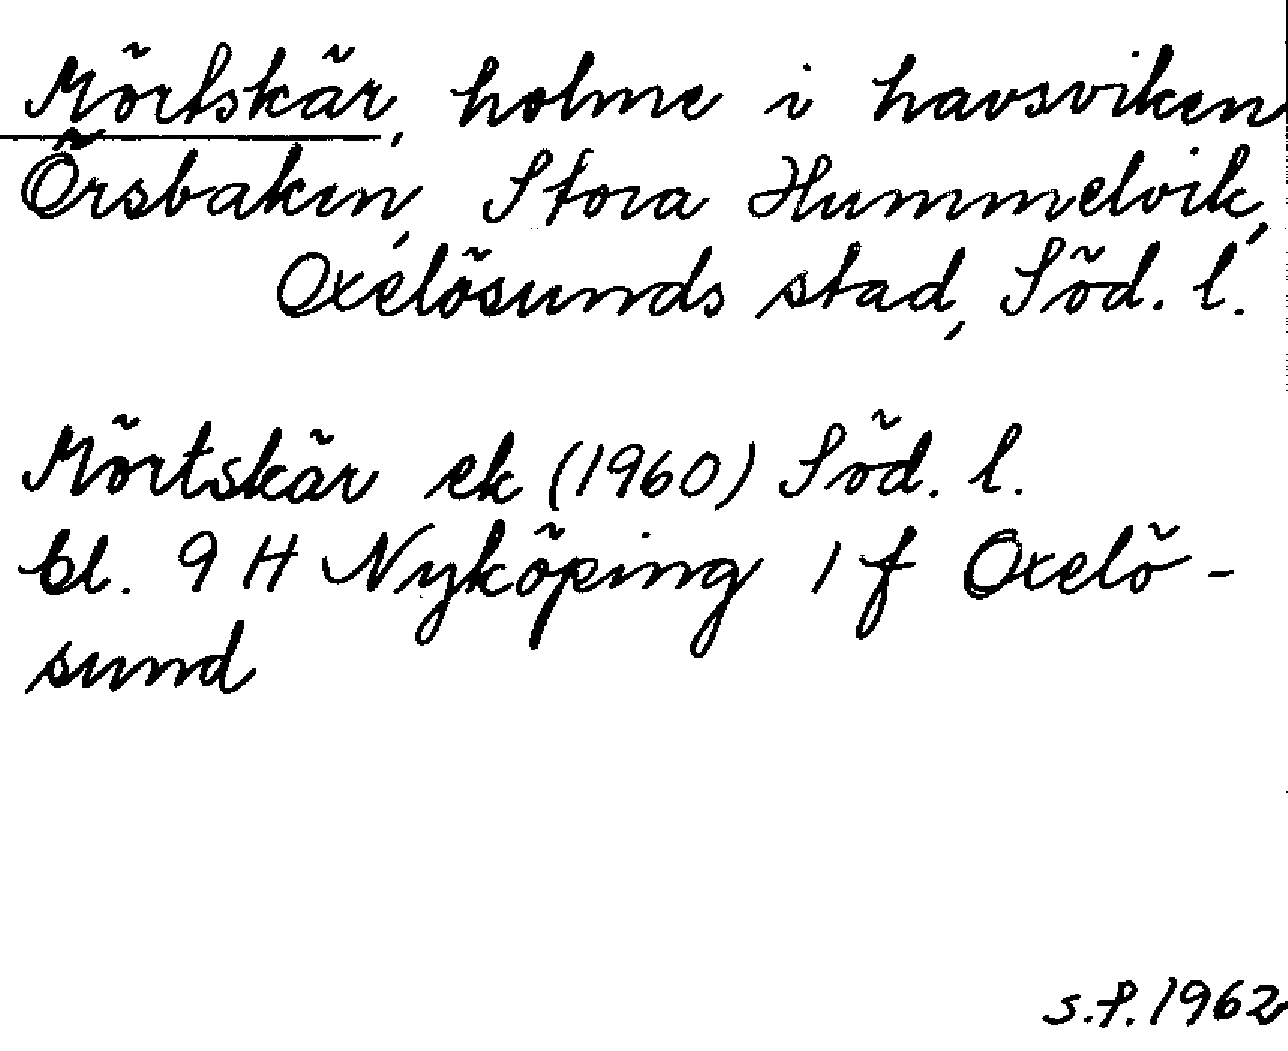 Mörtskär, holme i havsviken
Örsbaken, Stora Hummelvik,
Oxelösunds stad, Söd. l.
Mörtskär ek (1960) Söd. l.
bl. 9 H Nyköping 1 f Oxelö-
sund
S.P. 1962